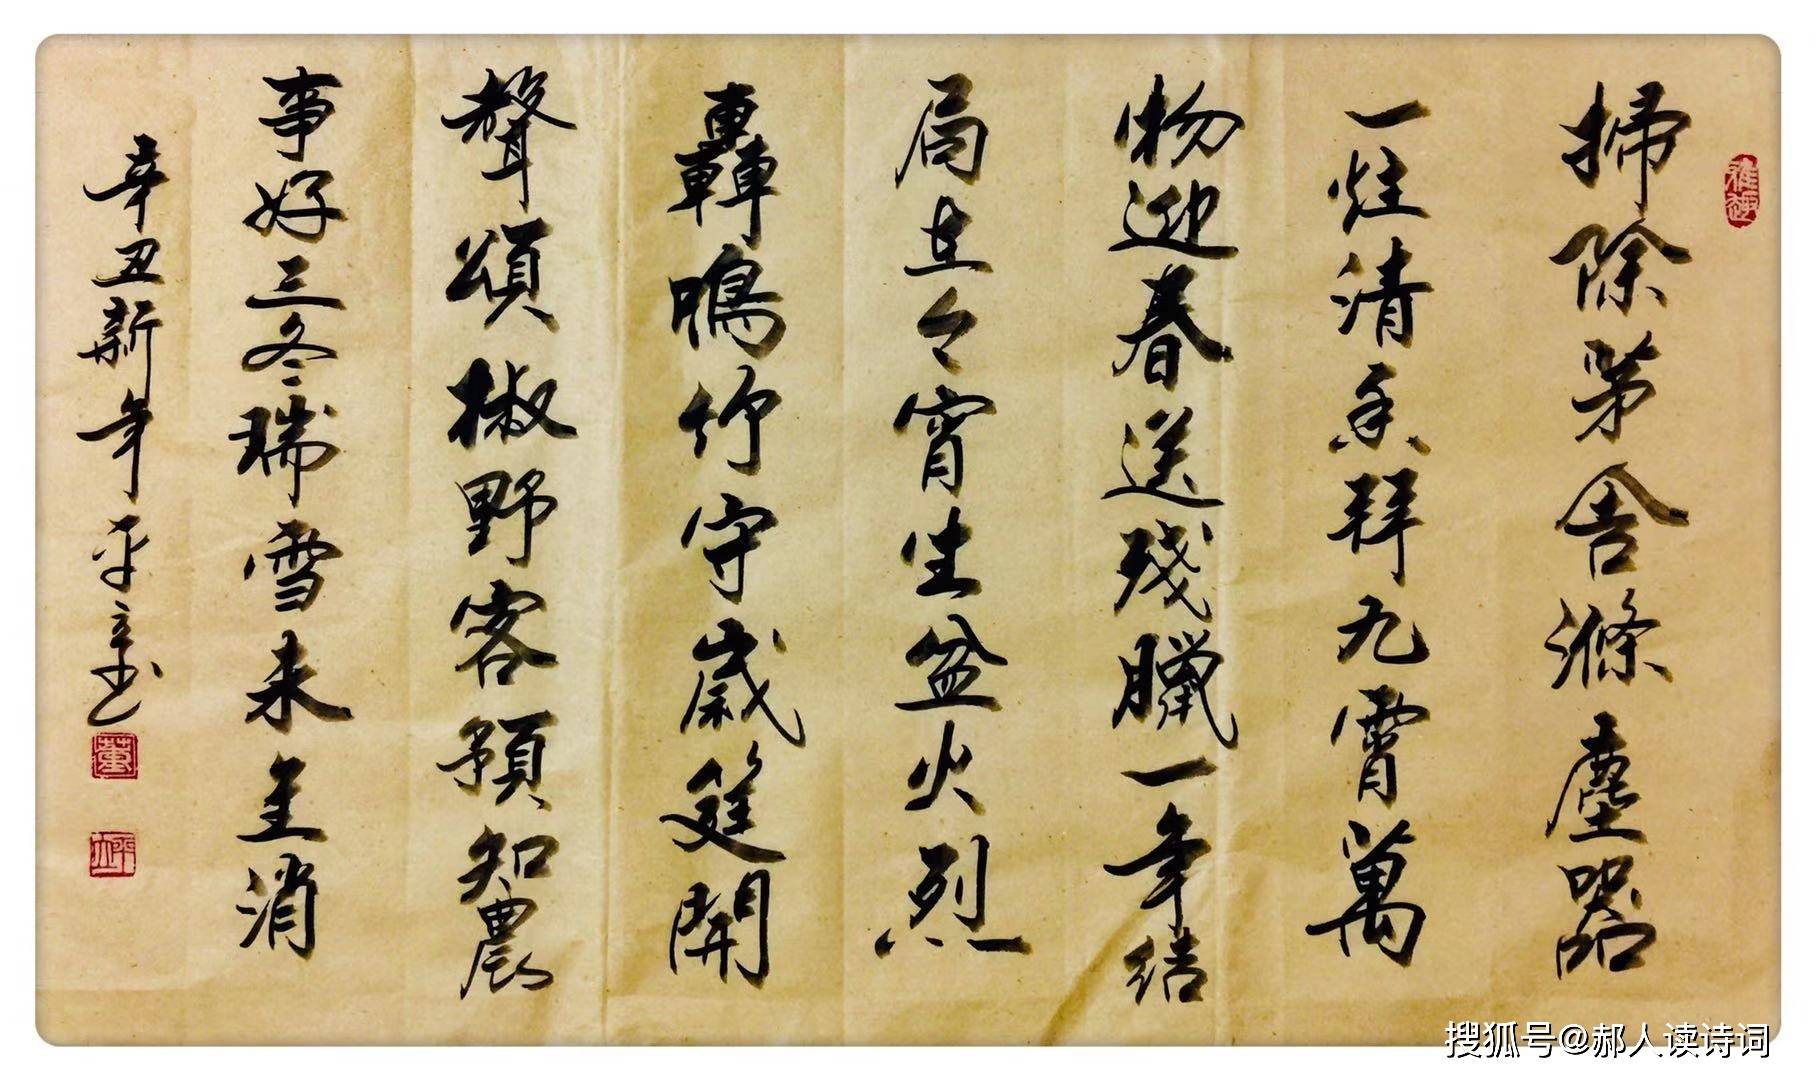 雅趣
掃除茅舍滌塵囂
一炷清香拜九霄萬
物迎春送残臘一年结
局在今宵生盆火烈
轟鳴竹守歲筵開
聲頌椒野客預知農
事好三冬瑞雪未全消
辛丑新年平立书
董
平立
搜狐号@郝人读诗词